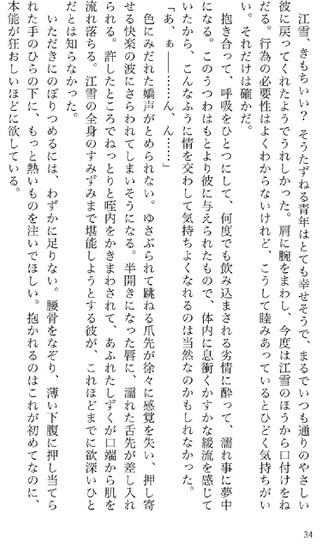 江雪、きもちいい？ そうたずねる青年はとても幸せそうで、まるでいつも通りのやさしい
彼に戻ってくれたようでうれしかった。肩に腕をまわし、今度は江雪のほうから口付けをね
だる。行為の必要性はよくわからないけれど、こうして睦みあっているとひどく気持ちがい
い。それだけは確かだ。
抱き合って、呼吸をひとつにして、何度でも飲み込まされる劣情に酔って、濡れ事に夢中
になる。このうつわはもとより彼に与えられたもので、体内に息衝くかすかな緩流を感じて
いたから、こんなふうに情を交わして気持ちよくなれるのは当然なのかもしれなかった。
「あ、ぁ――……ん、ん……」
色にみだれた嬌声がとめられない。ゆさぶられて跳ねる爪先が徐々に感覚を失い、押し寄
せる快楽の波にさらわれてしまいそうになる。半開きになった唇に、濡れた舌先が差し入れ
られる。許したところでねっとりと咥内をかきまわされて、あふれたしずくが口端から肌を
流れ落ちる。江雪の全身のすみずみまで堪能しようとする彼が、これほどまでに欲深いひと
だとは知らなかった。
いただきにのぼりつめるには、わずかに足りない。腰骨をなぞり、薄い下腹に押し当てら
れた手のひらの下に、もっと熱いものを注いでほしい。抱かれるのはこれが初めてなのに、
本能が狂おしいほどに欲している。
34